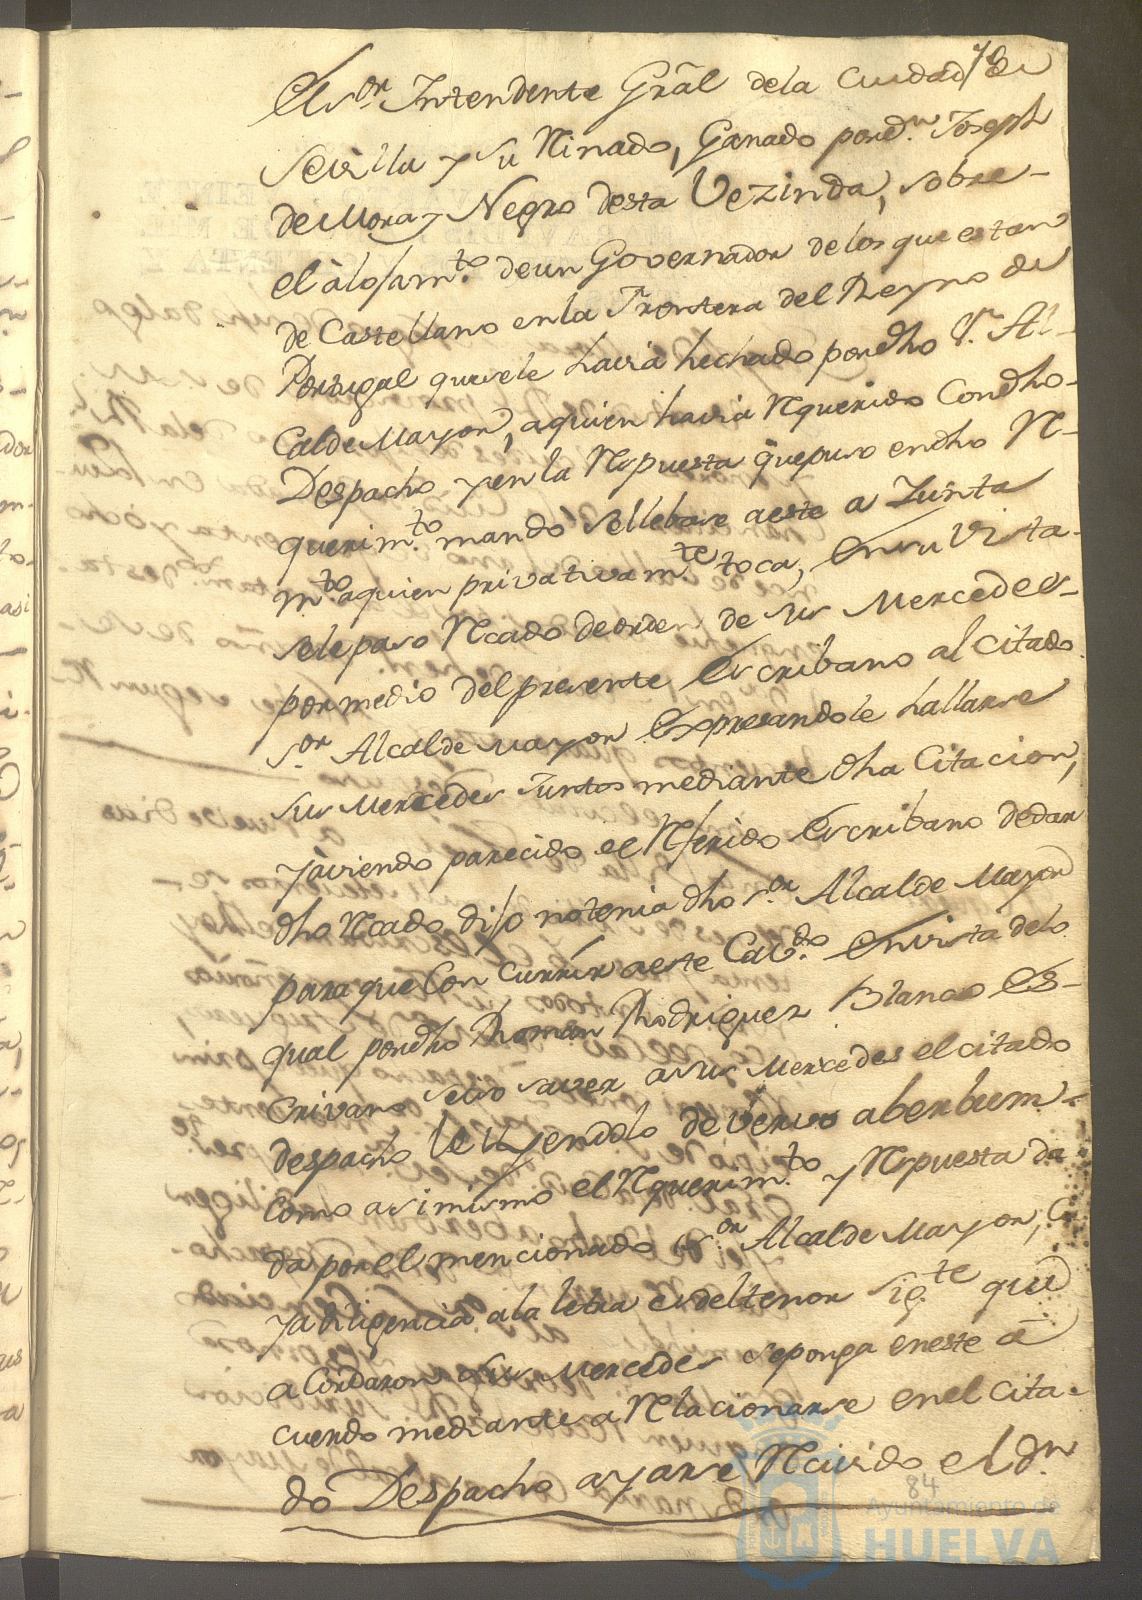 El s.or Intendente Grãl dela Ciudad de
Sevilla y su Rinado, Ganado por d.n Joseph
de Mora y Negro desta Vezinda, sobre
el àlojam.to de un Governador delos que estan
de Castellano en la Frontera del Reyno de
Portugal que sele havia hechado por dho S.r Al-
Calde Mayor, a quien havia Requerido Con dho
Despacho, y en la Respuesta que puso en dho Re-
querim.to mando se llebase a este a Junta
m.to a quien privativam.te toca, En su Vista
sele paso Recado de orden de sus Mercedes
por medio del presente Escribano al Citado
s.or Alcalde mayor Expresandole hallarse
sus Mercedes Juntos mediante dha Citacion,
y àviendo parecido el Referido Escribano de dar
dho Recado dijo notenia dho s.or Alcalde Mayor
para que Con Currir a este Cav.do En vista delo
qual por dho Roman Rodriguez Blanco Es-
Crivano se iso saver a sus Mercedes el citado
despacho leyendolo de Vervo aberbum
Como asimismo el Requerim.to y Respuesta da
da por el mencionado s.or Alcalde Mayor,
y a diligencia ala letra es del tenor sig.te que
aCordaron sus Mercedes se ponga en este à
cuerdo mediante a Relacionarse en el Cita-
do Despacho ayarse Recivido el d.n
84
Ayuntamiento de
HUELVA